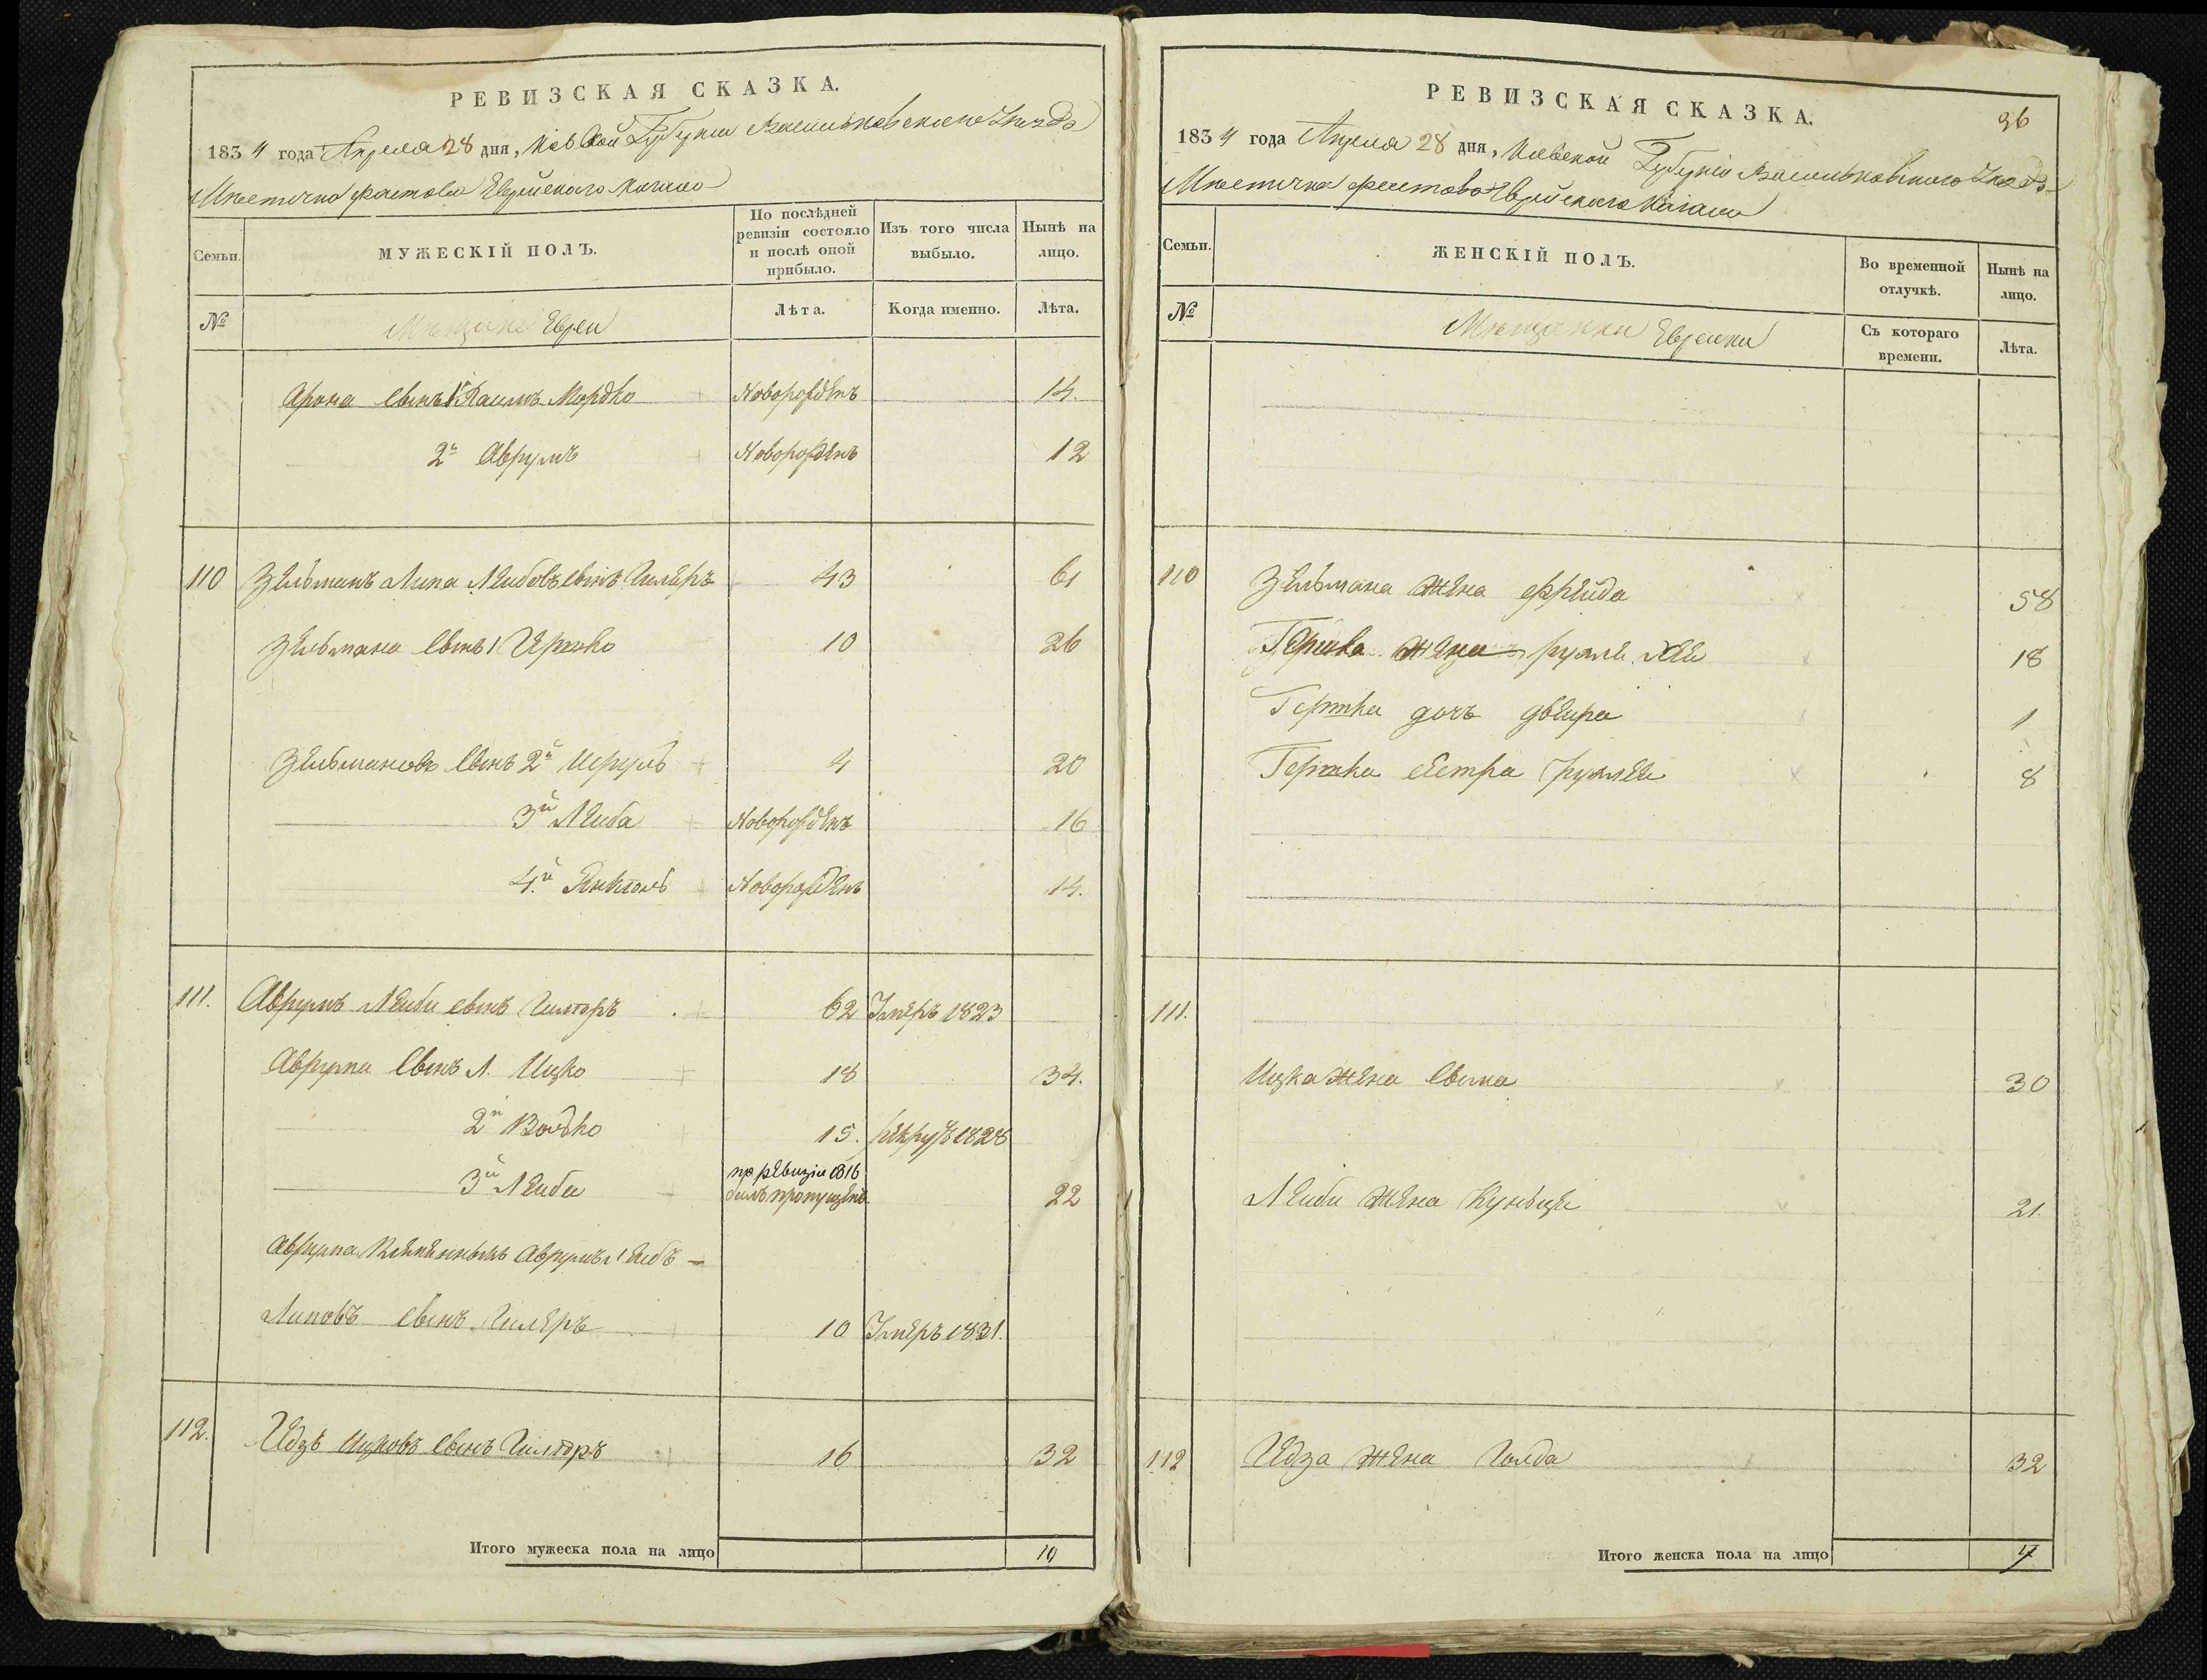 РЕВИЗСКАЯ СКАЗКА.
1834 года Апреля 28 дня, Киевской Губернии Васильковского Уезда
Местечка Фастова Еврейскаго Кагала
Семьи.
МУЖЕСКІЙ ПОЛЪ.
По послѣдней ревизіи состояло и послѣ оной прибыло.
Изъ того числа выбыло.
Нынѣ на лицо.
№
Мещане Евреи
Лѣта.
Когда именно.
Лѣта.
Арона сынъ 1й Хаимъ Мордко Новорожденъ 14.
2й Аврумъ Новорожденъ 12
110 Зельманъ Липа Лейбовъ сынъ 43 61
Зельмана сынъ 1 Гершко 10 26
Зельмановъ сынъ 2й Исруль 4 20
3й Лейба Новорожденъ 16
4й Янкель Новорожденъ 14.
111. Аврумъ Лейби сынъ 62 Умеръ 1823
Аврума сынъ 1. Ицко 18 34.
2й Волько 15. рекрут 1828
3й Лейба по ревизіи 1816 былъ пропущенъ. 22
Аврума племянникъ Аврумъ Лейб
Липовъ сынъ 10 Умеръ 1831.
112. Ицковъ сынъ 16 32
Итого мужеска пола на лицо 10
РЕВИЗСКАЯ СКАЗКА.
36
1834 года Апреля 28 дня, Киевской Губерніи Васильковского Уезда
Местечка Фастова Еврейскаго Кагала
Семьи.
ЖЕНСКІЙ ПОЛЪ.
Во временной отлучкѣ.
Нынѣ на лицо.
№
Мещанки Еврейки
Съ котораго времени.
Лѣта.
110 Зельмана жена Фрейда 58
Гершка жена 18
Гершка дочь Двейра 1
Гершка сестра 8
111.
Ицка жена 30
Лейби жена 21.
112 жена Голда 32
Итого женска пола на лицо 7